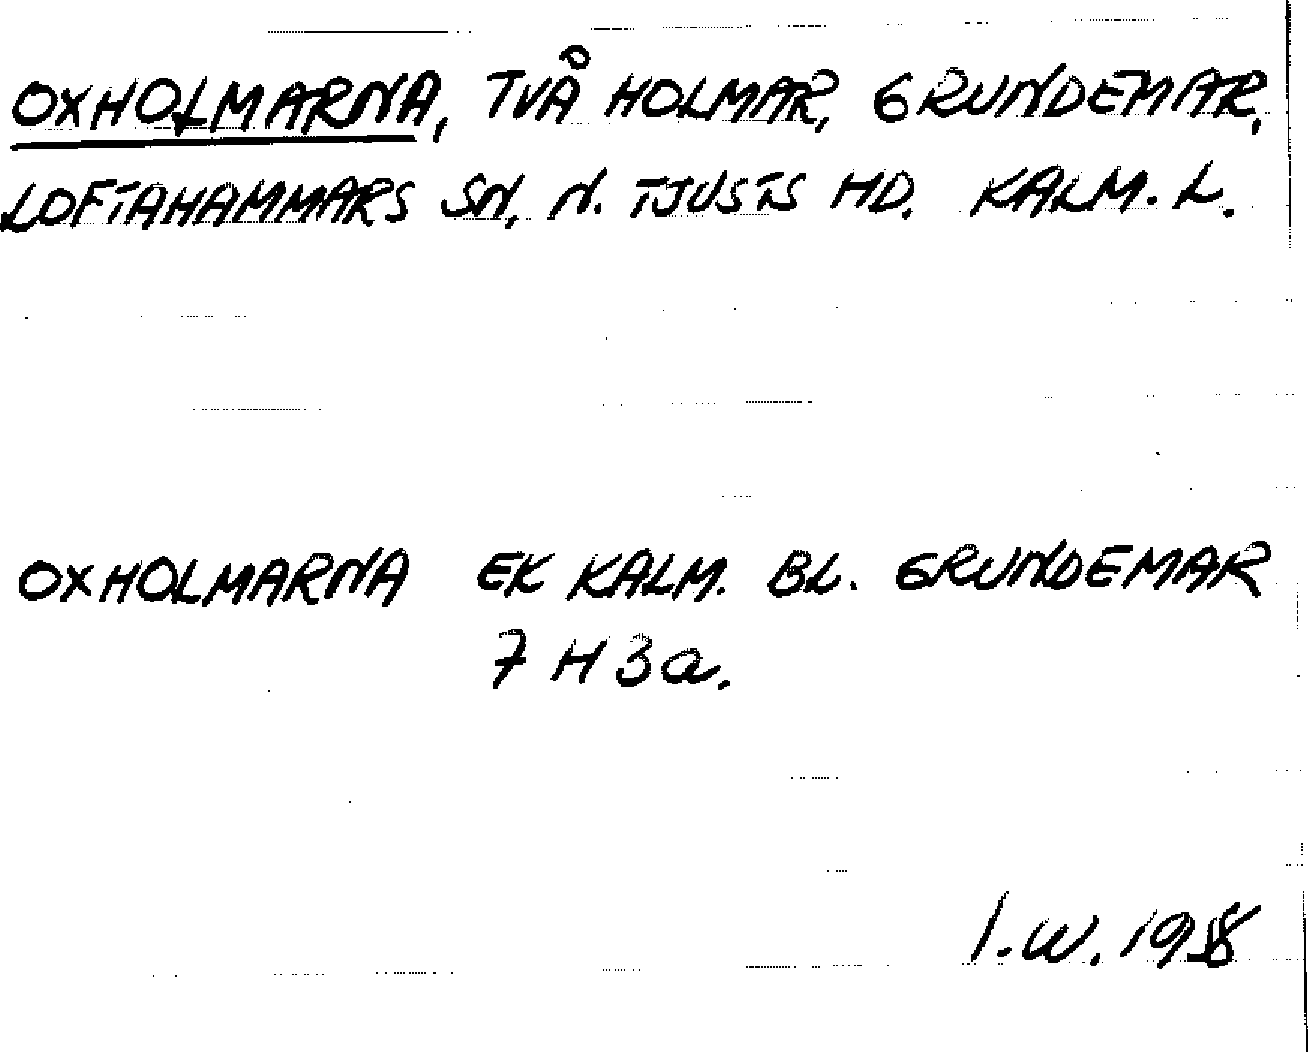 OXHOLMARNA, TVÅ HOLMAR, GRUNDEMAR,
LOFTAHAMMARS SN, N. TJUSTS HD. KALM. L.
OXHOLMARNA EK KALM. BL. GRUNDEMAR
7 H 3a.
I.W.